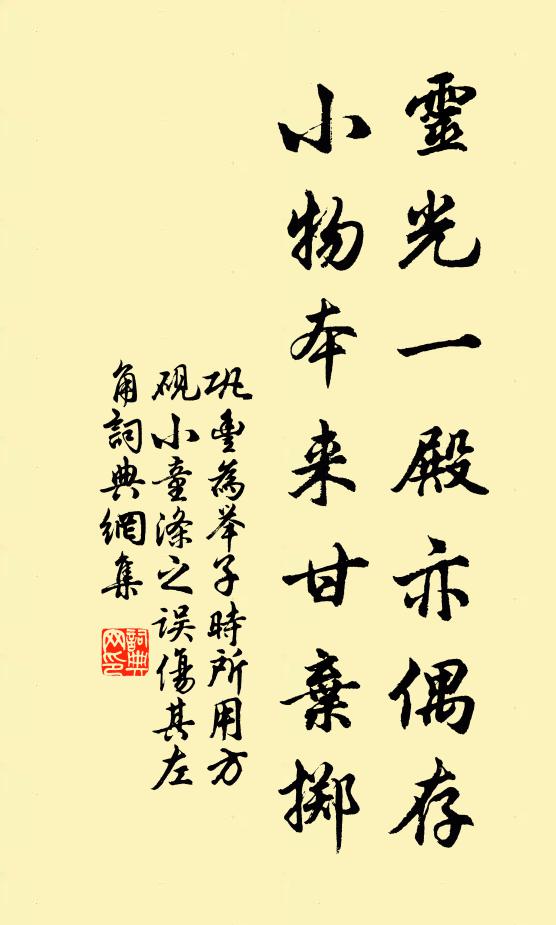 靈光一殿亦偶存
小物本来甘棄擲
巩豊為举子時所用方
砚小童滌之误傷其左
角詞典網集
詞典網印